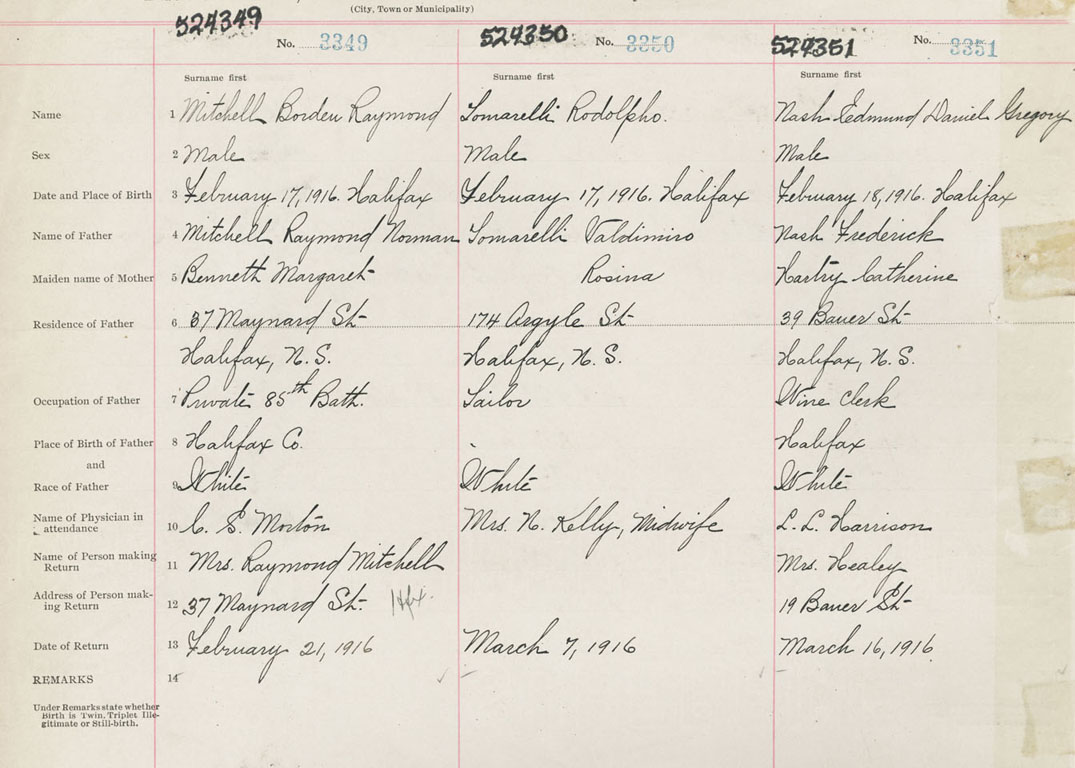 (City, Town or Municipality)
524349 524350 524351
No. 3349 No. 3350 No. 3351
Surname first Surname first Surname first
Name 1 Mitchell Borden Raymond Tomarelli Rodolpho. Nash Edmund Daniel Gregory
Sex 2 Male Male Male
Date and Place of Birth 3 February 17, 1916. Halifax February 17, 1916. Halifax February 18, 1916. Halifax
Name of Father 4 Mitchell Raymond Norman Tomarelli Valdimiro Nash Frederick
Maiden name of Mother 5 Bennett Margaret Rosina Hartry Catherine
Residence of Father 6 37 Maynard St 174 Argyle St 39 Bauer St
Halifax, N.S. Halifax, N.S. Halifax, N.S.
Occupation of Father 7 Private 85th Batt. Wine Clerk
Place of Birth of Father 8 Halifax Co. Halifax
and
Race of Father 9 White White White
Name of Physician in
attendance 10 C. S. Morton Mrs. N. Kelly, Midwife L. L. Harrison
Name of Person making
Return 11 Mrs. Raymond Mitchell Mrs. Healey
Address of Person mak-
ing Return 12 37 Maynard St. Hfx. 19 Bauer St
Date of Return 13 February 21, 1916 March 7, 1916 March 16, 1916
REMARKS 14
Under Remarks state whether
Birth is Twin, Triplet Ille-
gitimate or Still-birth.